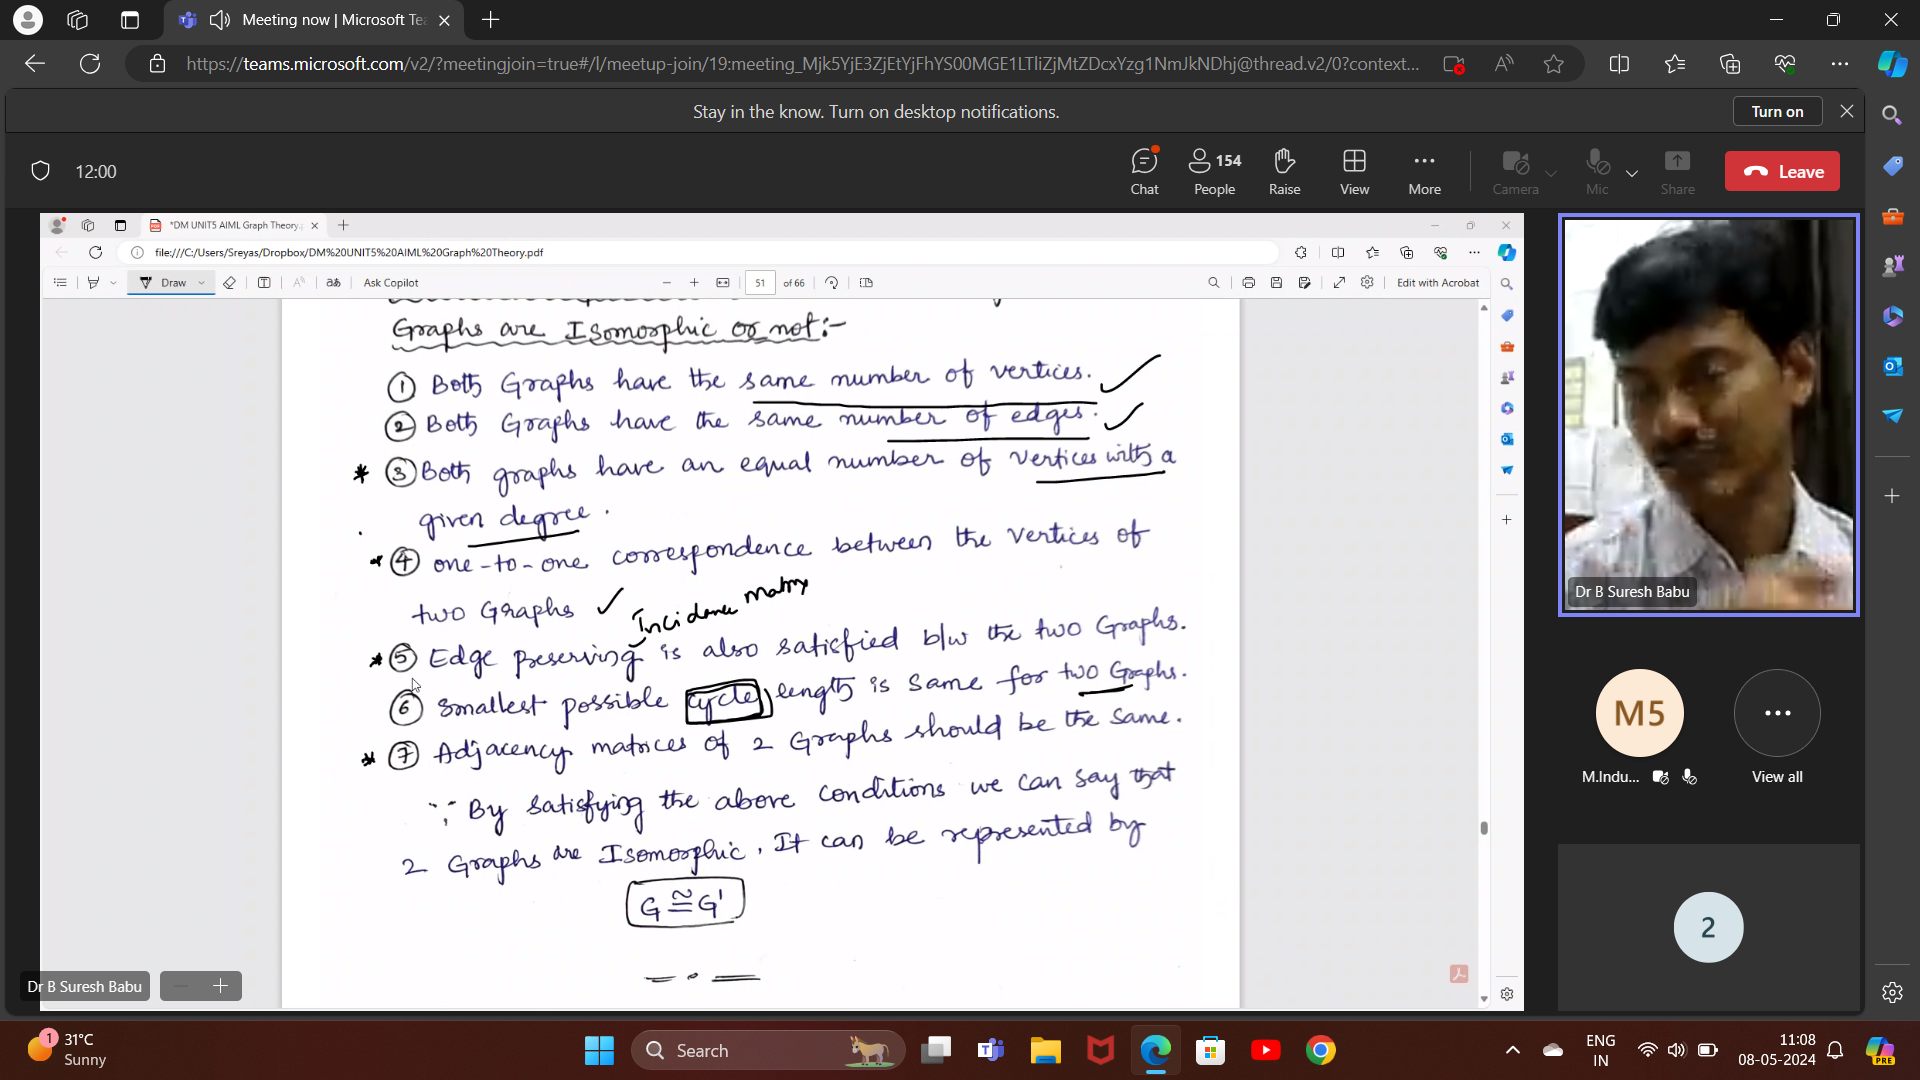 Meeting now | Microsoft Te
https://teams.microsoft.com/v2/?meetingjoin=true#/l/meetup-join/19:meeting_Mjk5YjE3ZjEtYjFhYS00MGE1LTliZjMtZDcxYzg1NmJkNDhj@thread.v2/0?context...
Stay in the know. Turn on desktop notifications.
Turn on
12:00
Chat
154
People
Raise
View
More
Camera
Mic
Share
Leave
*DM UNIT5 AIML Graph Theory.
file:///C:/Users/Sreyas/Dropbox/DM%20UNIT5%20AIML%20Graph%20Theory.pdf
Draw
Ask Copilot
51 of 66
Edit with Acrobat
Graphs are Isomorphic or not:-
① Both Graphs have the same number of vertices. ✓
② Both Graphs have the same number of edges. ✓
* ③ Both graphs have an equal number of vertices with a
given degree.
* ④ one-to-one correspondence between the vertices of
two Graphs ✓
Incidence Matrix
* ⑤ Edge preserving is also satisfied b/w the two Graphs.
⑥ Smallest possible cycle length is same for two Graphs.
* ⑦ Adjacency matrices of 2 Graphs should be the same.
∵ By satisfying the above conditions we can say that
2 Graphs are Isomorphic. It can be represented by
G ≅ G'
Dr B Suresh Babu
Dr B Suresh Babu
M5
M.Indu...
View all
2
1
31°C
Sunny
Search
ENG
IN
11:08
08-05-2024
PRE